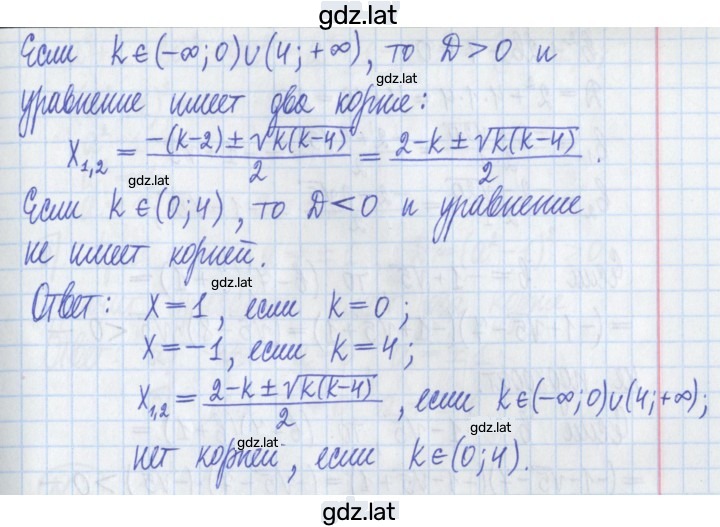 gdz.lat
Если k∈(−∞;0)∪(4;+∞), то D>0 и
gdz.lat
уравнение имеет два корне:
gdz.lat
x₁,₂ = (−(k−2)±√(k(k−4)))/2 = (2−k±√(k(k−4)))/2 .
gdz.lat
Если k∈(0;4), то D<0 и уравнение
gdz.lat
не имеет корней.
gdz.lat
Ответ: x=1, если k=0;
gdz.lat
x=−1, если k=4;
gdz.lat
x₁,₂ = (2−k±√(k(k−4)))/2 , если k∈(−∞;0)∪(4;+∞);
gdz.lat
gdz.lat
нет корней, если k∈(0;4).
gdz.lat